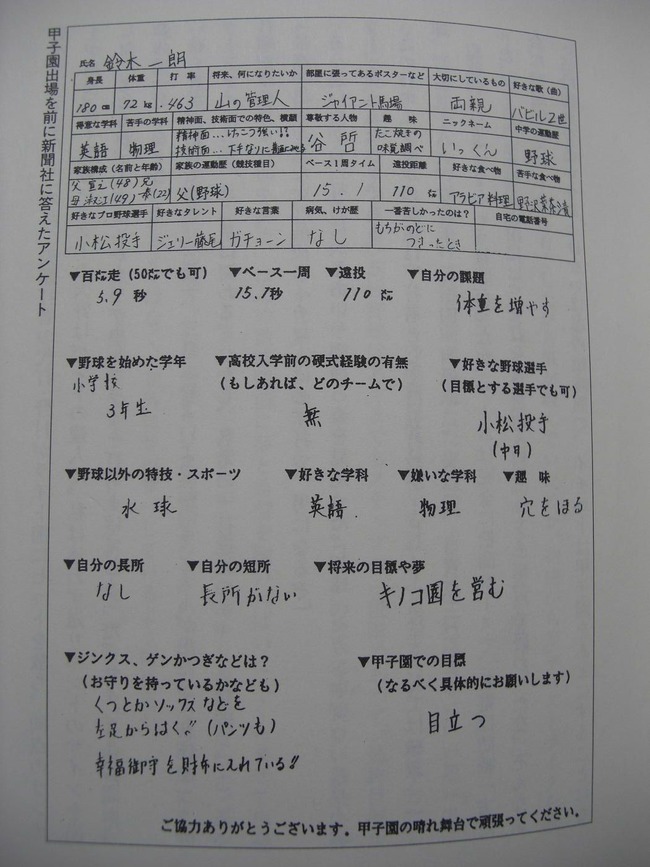 甲子園出場を前に新聞社に答えたアンケート
氏名 鈴木一朗
身長 体重 打率 将来、何になりたいか 部屋に張ってあるポスターなど 大切にしているもの 好きな歌(曲)
180㎝ 72kg .463 山の管理人 ジャイアント馬場 両親 バビル2世
得意な学科 苦手の学科 精神面、技術面での特色、横顔 尊敬する人物 趣味 ニックネーム 中学の運動歴
英語 物理 精神面…けっこう強い!! 谷哲 たこ焼きの いっくん 野球
技術面…下手なりに 味覚調べ
家族構成(名前と年齢) 家族の運動歴(競技種目) ベース1周タイム 遠投距離 好きな食べ物 苦手な食べ物
父 (48) 兄 父(野球) 15.1 110 アラビア料理 野沢菜茶漬
母 (49) (22)
好きなプロ野球選手 好きなタレント 好きな言葉 病気、けが歴 一番苦しかったのは? 自宅の電話番号
小松投手 ジェリー藤尾 ガチョーン なし もちがのどに
つまったとき
▼百㍍走(50㍍でも可) ▼ベース一周 ▼遠投 ▼自分の課題
5.9秒 15.1秒 110㍍ 体重を増やす
▼野球を始めた学年 ▼高校入学前の硬式経験の有無 ▼好きな野球選手
小学校 (もしあれば、どのチームで) (目標とする選手でも可)
3年生 無 小松投手
(中日)
▼野球以外の特技・スポーツ ▼好きな学科 ▼嫌いな学科 ▼趣味
水球 英語. 物理 穴をほる
▼自分の長所 ▼自分の短所 ▼将来の目標や夢
なし 長所がない キノコ園を営む
▼ジンクス、ゲンかつぎなどは? ▼甲子園での目標
(お守りを持っているかなども) (なるべく具体的にお願いします)
くつとかソックスなどを 目立つ
左足からはく!!(パンツも)
幸福御守を財布に入れている!!
ご協力ありがとうございます。甲子園の晴れ舞台で頑張ってください。